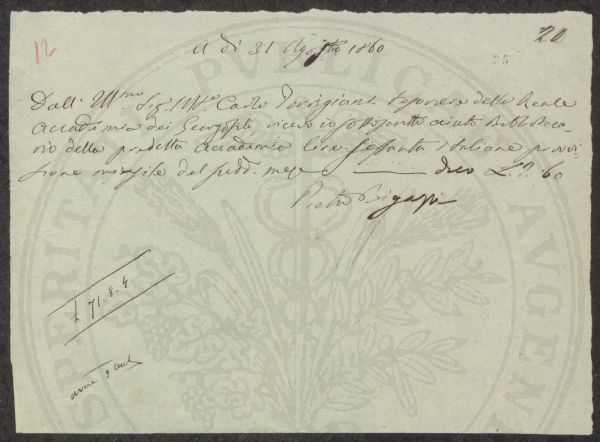 12
20
A dì 31 Agosto 1860
Dall' Ill.mo Sig. M.se Carlo Torrigiani Tesoriere della Reale
Accademia dei Georgofili ricevo io sottoscritto aiuto Bibliotecario
della predetta Accademia Lire Sessanta italiane provvi
sione mensile del sudd. mese ——— dico L. I. 60
Pietro Bigazzi
£ 71. 8. 4
PROSPERITATI PUBLICAE AUGENDAE